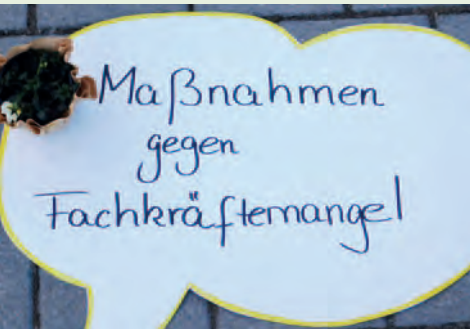 Maßnahmen
gegen
Fachkräftemangel